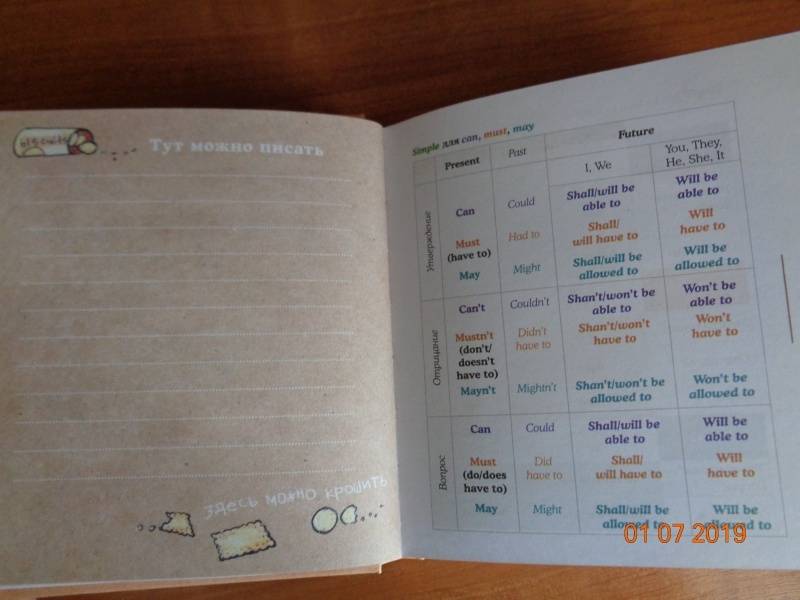 biscuits
Тут можно писать
Здесь можно крошить
Simple для can, must, may
Present
Past
Future
I, We
You, They,
He, She, It
Утверждение
Can
Could
Shall/will be
able to
Will be
able to
Must
(have to)
Had to
Shall/
will have to
Will
have to
May
Might
Shall/will be
allowed to
Will be
allowed to
Отрицание
Can't
Couldn't
Shan't/won't be
able to
Won't be
able to
Mustn't
(don't/
doesn't
have to)
Didn't
have to
Shan't/won't
have to
Won't
have to
Mayn't
Mightn't
Shan't/won't be
allowed to
Won't be
allowed to
Вопрос
Can
Could
Shall/will be
able to
Will be
able to
Must
(do/does
have to)
Did
have to
Shall/
will have to
Will
have to
May
Might
Shall/will be
allowed to
Will be
allowed to
01 07 2019